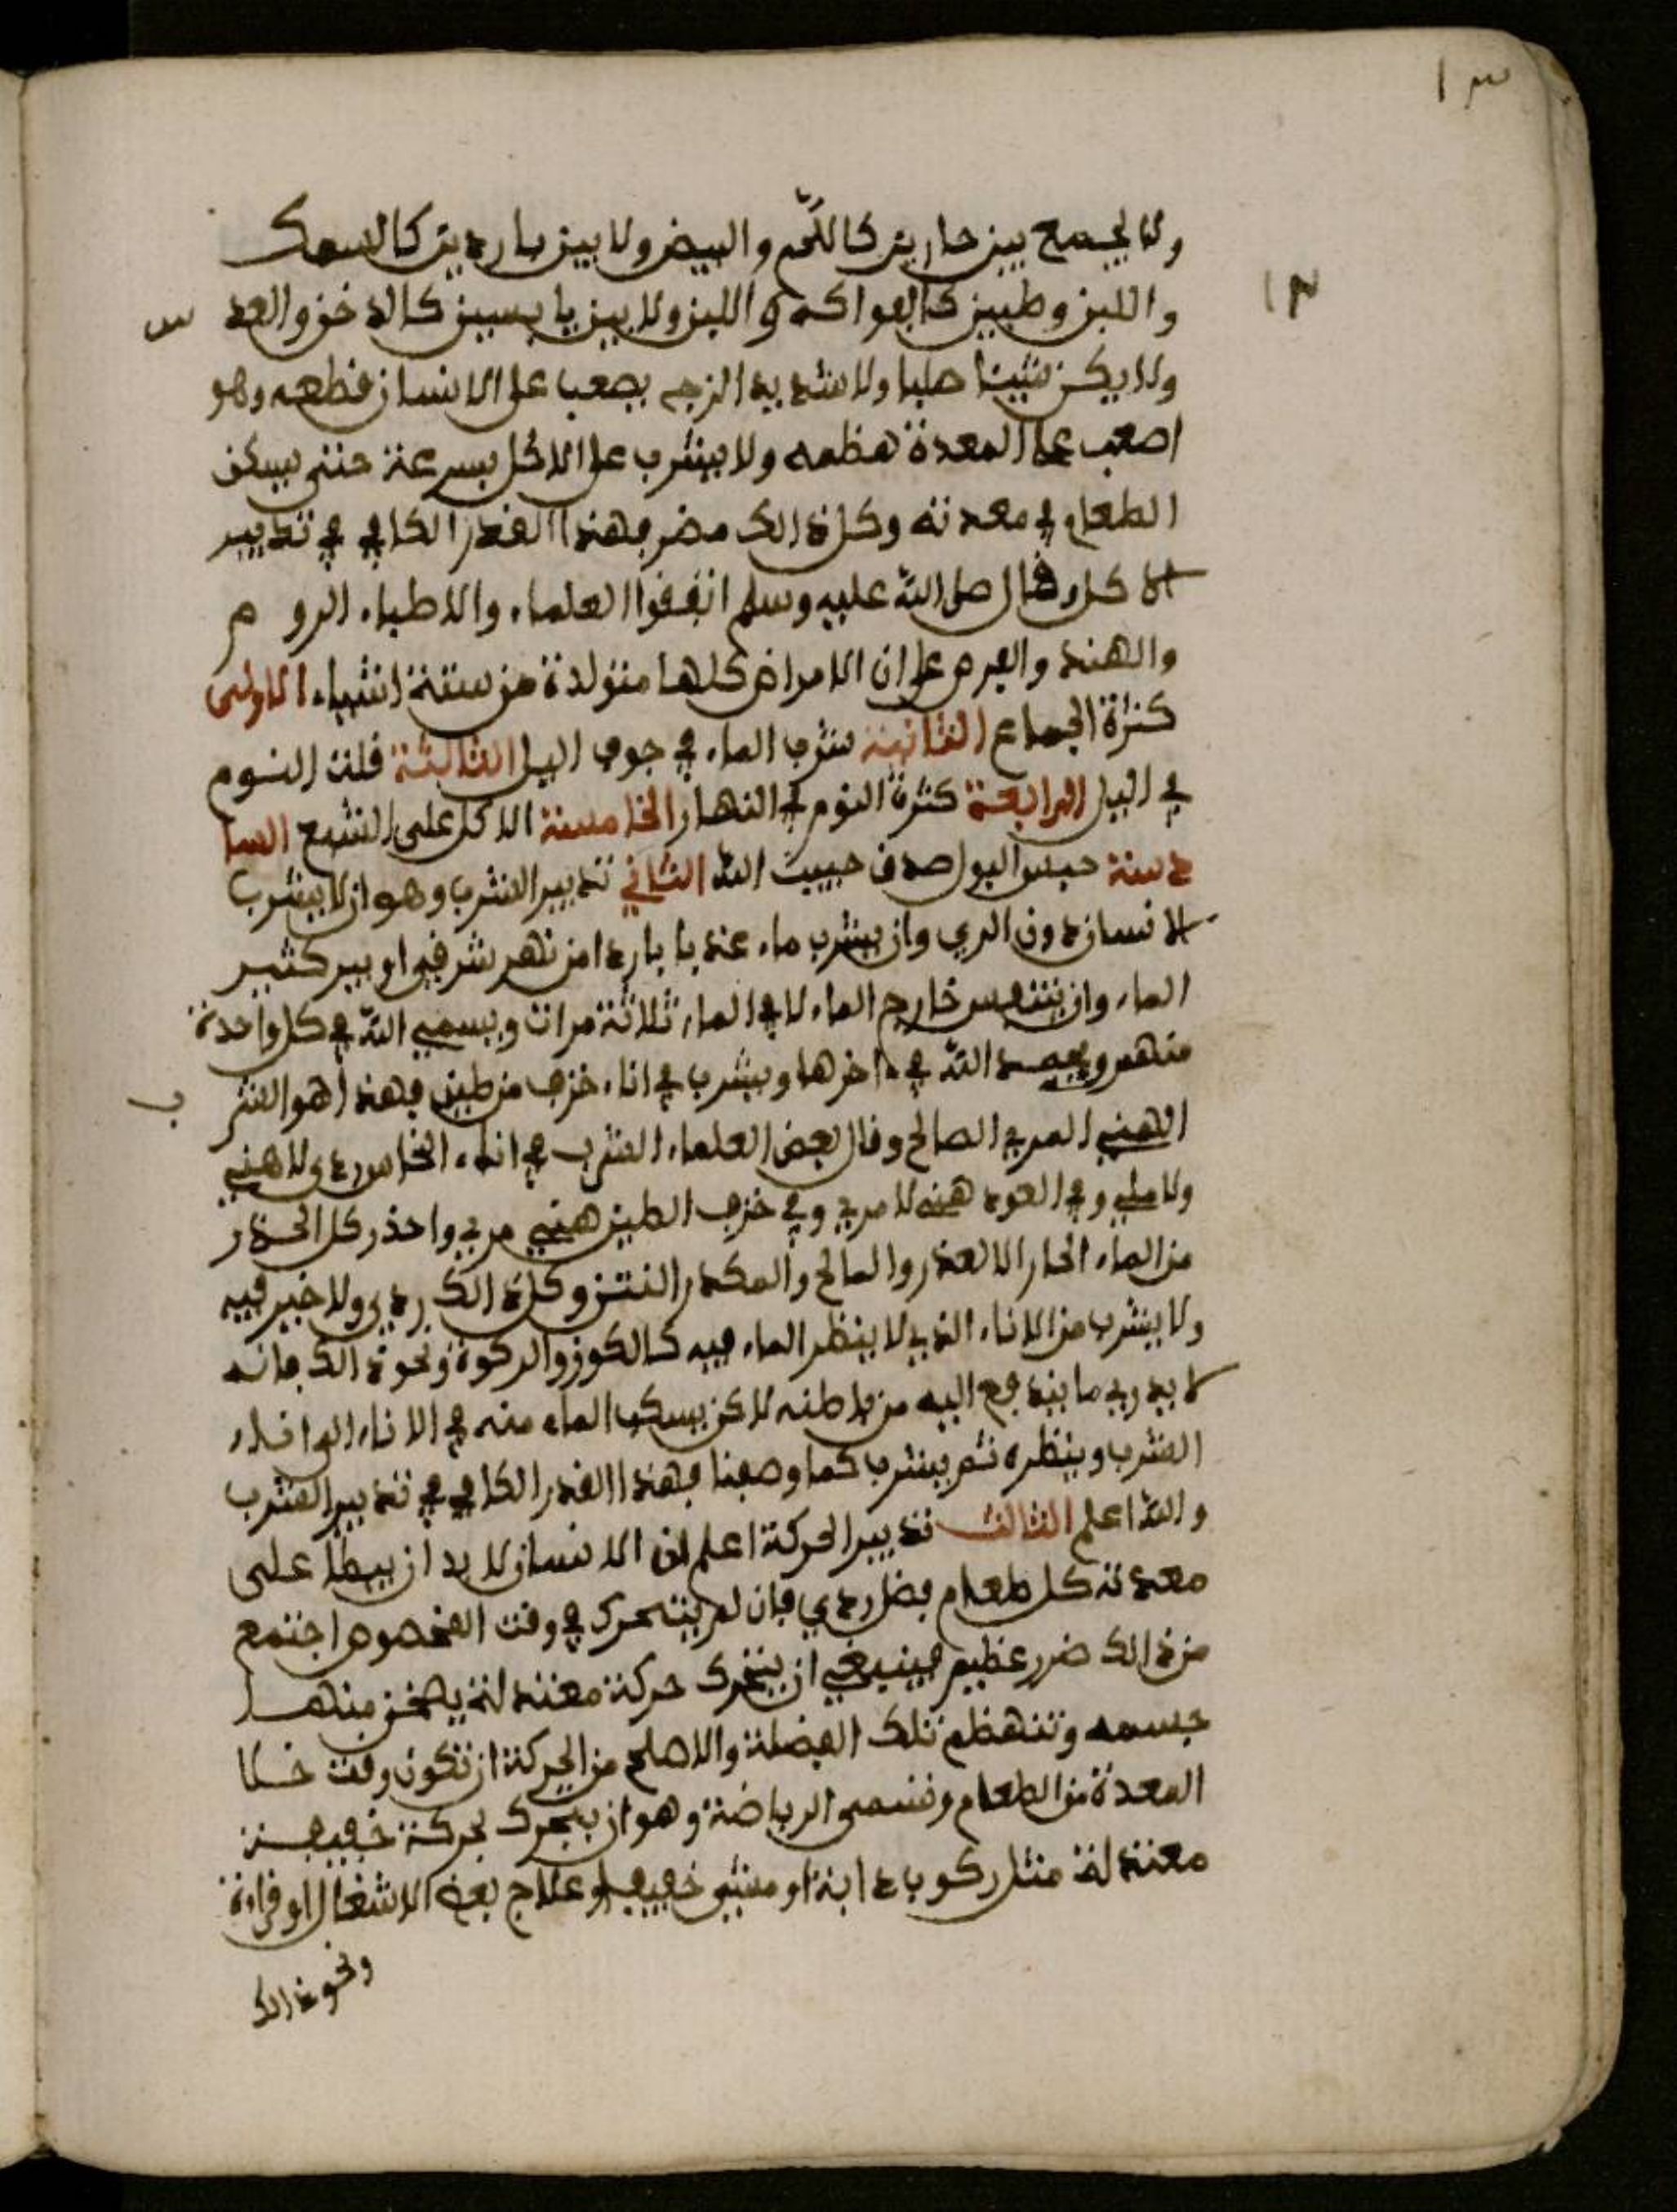 ١٣
ولا يجمع بين حارين كاللحم والبيض ولا بين باردين كالسمك
١٣
واللبن وطبين كالفواكه واللبن ولا بين يابسين كالدخن والعد س
ولا يكن شيئا صلبا ولا شديد الزج يصعب على الانسان قطعه وهو
اصعب على المعدة هظمه ولا يشرب على الاكل بسرعة حتى يسكن
الطعام في معدته وكل ذالك مضر فهذا القدر الكافي في تدبير
الاكل وقال صلى الله عليه وسلم اتفقوا العلماء والاطباء الروم
والهند والفرس على ان الامراض كلها متولدة من ستة اشياء الاولى
كثرة الجماع الثانية شرب الماء في جوف اليل الثالثة قلت النوم
في اليل الرابعة كثرة النوم في النهار الخامسة الاكل على الشبع السا
دسة حبس البول صدق حبيب الله الثاني تدبير الشرب وهو ان لا يشرب
الانسان دون الري وان يشرب ماء عذبا باردا من نهر شرقي او بير كثير
الماء وان يتنفس خارج الماء لا في الماء ثلاثة مرات ويسمي الله في كل واحدة
منهم ويحمد الله في ءاخرها ويشرب في اناء خزف من طين فهذا هو الشر ب
الهني المري الصالح وقال بعض العلماء الشرب في اناء النحاس ردي لا هني
ولا ملي وفي العود هني لا مري وفي خزف الطين هني مري واحذر كل الحذر
من الماء الحار الا لعذر والمالح والمكدر النتن وكل ذالك ردي ولا خير فيه
ولا يشرب من الاناء الذي لا ينظر الماء فيه كالكوز والركوة ونحو ذالك فانه
لا يدري ما يندفع اليه من باطنه لاكن يسكب الماء منه في الاناء
الشرب وينظره ثم يشرب كما وصفنا فهذا القدر الكافي في تدبير الشرب
والله اعلم الثالث تدبير الحركة اعلم ان الانسان لا بد ان يبطا على
معدته كل طعام فضل ردي فان لم يتحرك في وقت المخصوص اجتمع
من ذالك ضرر عظيم فينبغي ان يتحرك حركة معتدلة يصخن منها
جسمه وتنهظم تلك الفضلة والاصلح من الحركة ان تكون وقت خلا
المعدة من الطعام وتسمى الرياضة وهو ان يتحرك بحركة خفيفة
معتدلة مثل ركوب دابة او مشي خفيف او علاج بعض الاشغال او قراءة
ونحو ذالك